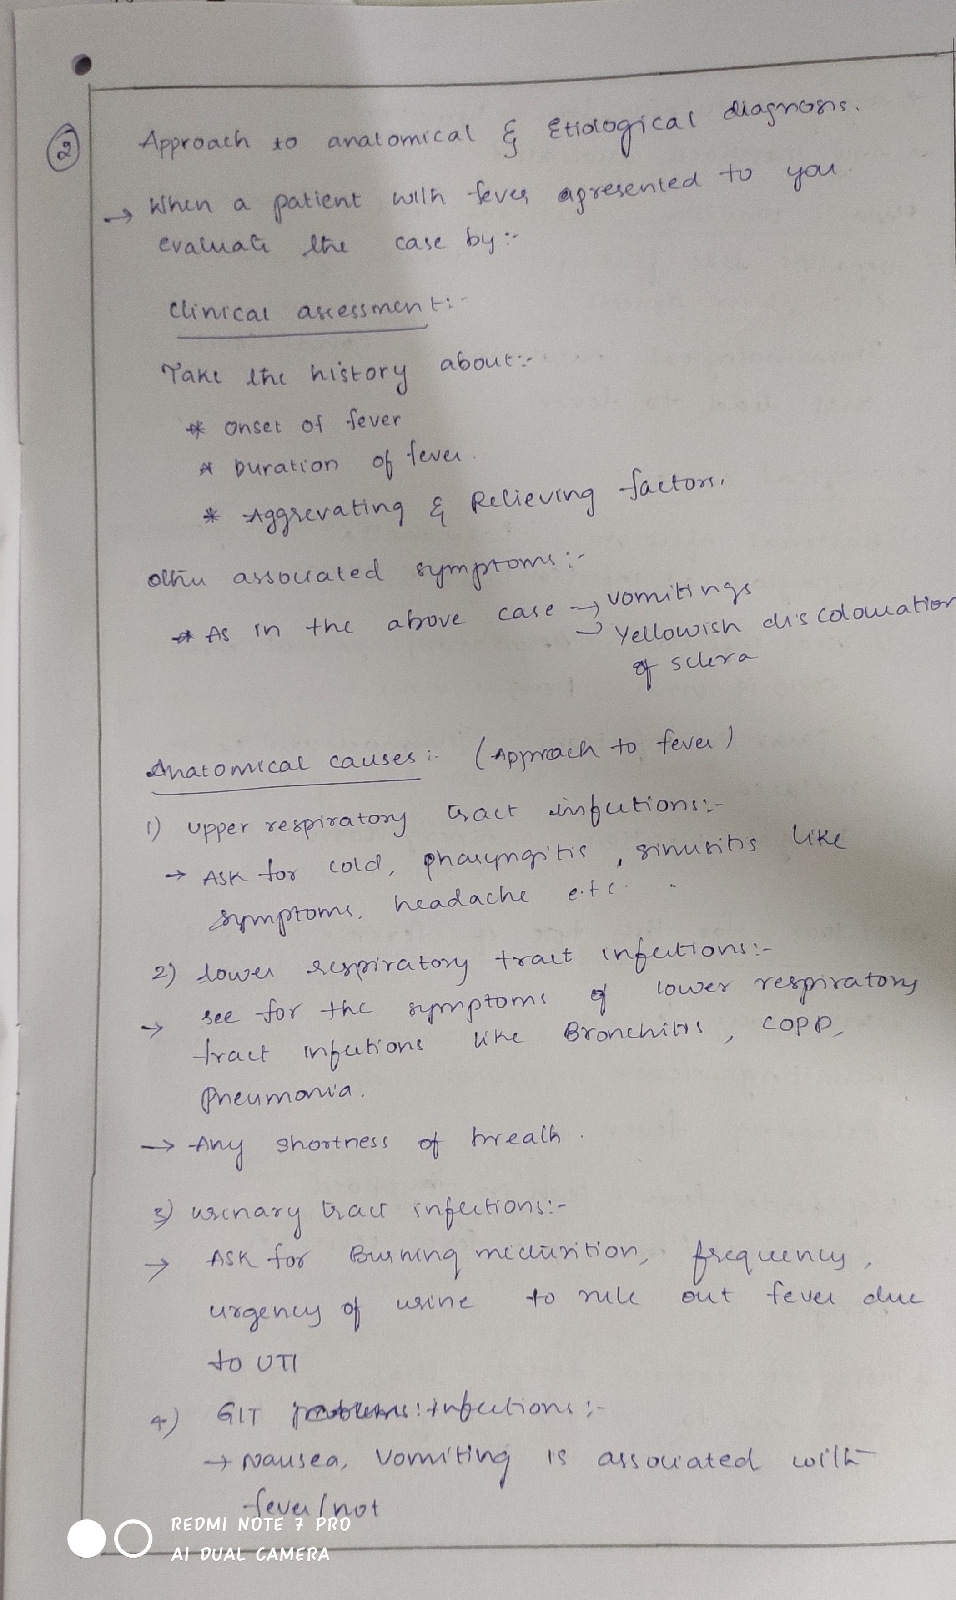 2
Approach to anatomical & Etiological diagnosis.
→ When a patient with fever presented to you
evaluate the case by :-
Clinical assessment:-
Take the history about:-
* Onset of fever
* Duration of fever.
* Aggrevating & Relieving factors.
Other associated symptoms :-
* As in the above case → vomitings
→ Yellowish discolouration
of sclera
Anatomical causes :- (Approach to fever)
1) Upper respiratory tract infections:-
→ Ask for cold, pharyngitis, sinusitis like
symptoms, headache e.t.c.
2) lower respiratory tract infections:-
→ see for the symptoms of lower respiratory
tract infections like Bronchitis, COPD,
Pneumonia.
→ Any shortness of breath.
3) urinary tract infections:-
→ Ask for Burning micturition, frequency,
urgency of urine to rule out fever due
to UTI
4) GIT infections :-
→ Nausea, Vomiting is associated with
fever/not
REDMI NOTE 7 PRO
AI DUAL CAMERA